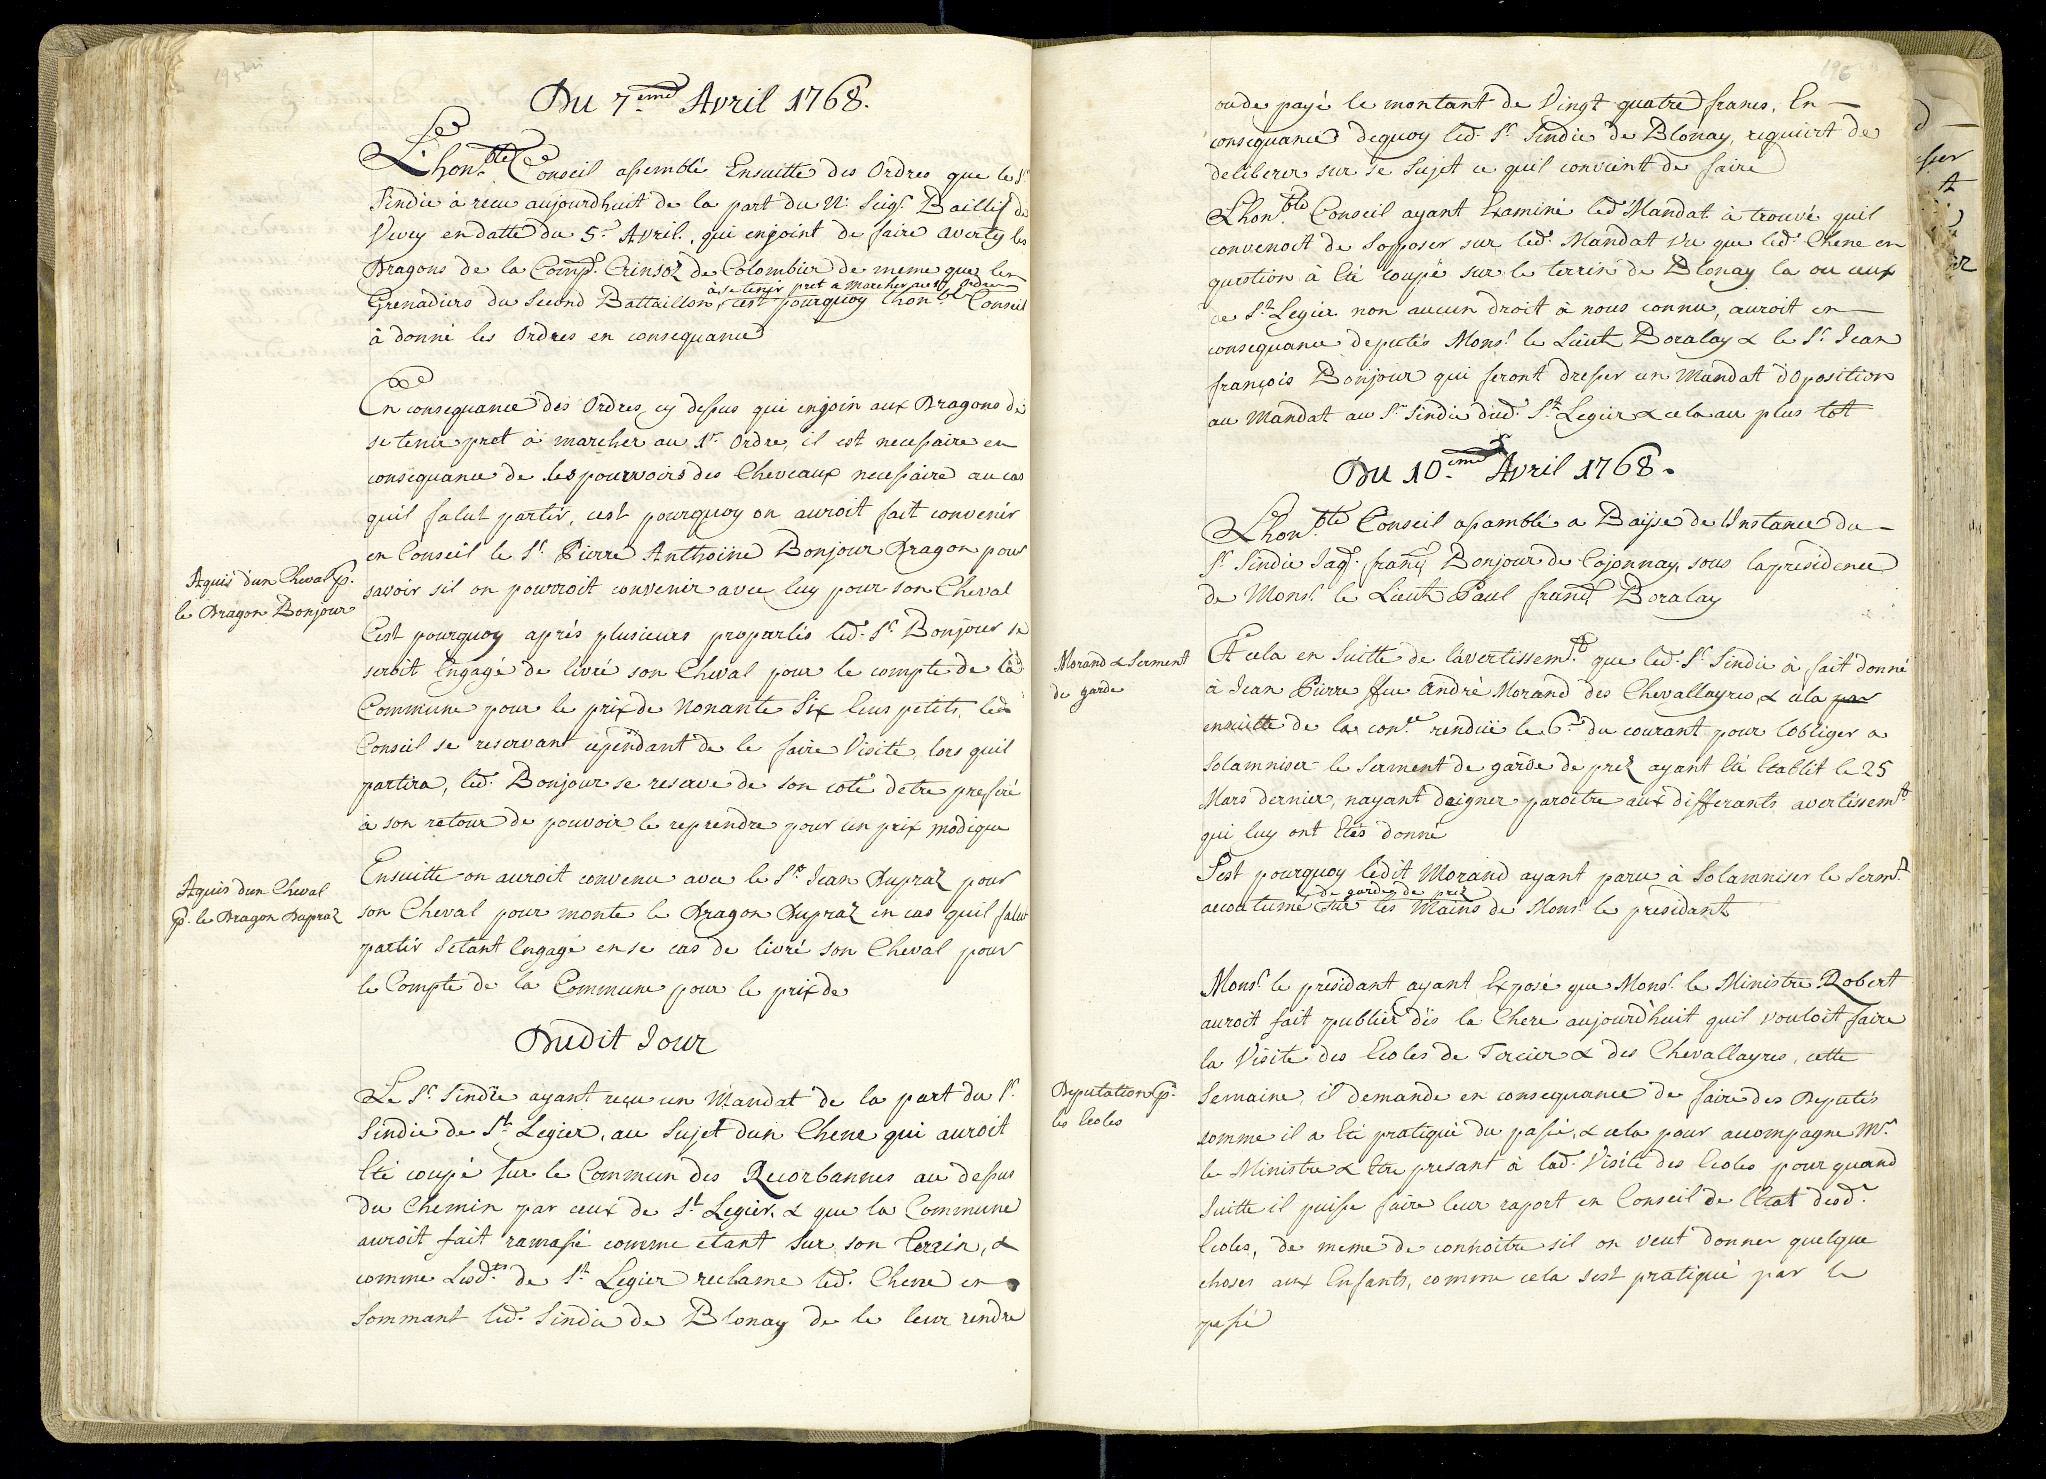 195bis
Du 7.eme Avril 1768.
L'hon.ble Conseil assemblé Ensuitte des Ordres que le Sr
Sindic à recu aujourdhuit de la part du N: Seigr. Baillif de
Vevey endatte du 5.e Avril, qui enjoint de faire averty les
Dragons de la Comp.e Crinsoz de Colombier de meme que les
à se tenir pret a Marcher au 1er Ordre
Grenadiers du Second Battaillon, c'est pourquoy lhon.ble Conseil
à donné les Ordres en consequance
En consequance des Ordres cy dessus qui enjoin aux Dragons de
se tenir pret à marcher au 1er. Ordre, il est necessaire en
consequance de les pourvoirs des Cheveaux necessaire au cas
quil falut partir, cest pourquoy on auroit fait convenir
en Conseil le Sr. Pierre Anthoine Bonjour Dragon pour
savoir sil on pourroit convenir avec luy pour son Cheval
Aquis dun Cheval p.
le Dragon Bonjour
Cest pourquoy aprés plusieurs proparlés led. Sr. Bonjour se
seroit Engagé de livré son Cheval pour le compte de la
Commune pour le prix de Nonante Six Ecus petits, led
Conseil se reservant cependant de le faire Visité lors quil
partira, led. Bonjour se reserve de son coté detre preferé
à son retour de pouvoir le reprendre pour un prix modique
Ensuitte on auroit convenu avec le Sr. Jean Dupraz pour
Aquis dun Cheval
p. le Dragon Dupraz
son Cheval pour monte le Dragon Dupraz en cas quil falut
partir Setant Engagé en se cas de livré son Cheval pour
le Compte de la Commune pour le prix de
Dudit Jour
Le Sr. Sindic ayant reçu un Mandat de la part du Sr.
Sindic de St. Legier, au Sujet dun Chene qui auroit
Eté coupé sur le Commun des Recorbannes au dessus
du Chemin par ceux de St. Legier, & que la Commune
auroit fait ramassé comme etant sur son Terrin, &
comme Lesd.ts de St. Legier reclame led. Chene en
Sommant led. Sindic de Blonay de le leur rendre
196
oude payé le montant de Vingt quatre francs, En
consequance dequoy led. Sr. Sindic de Blonay, requiert de
deliberer sur se Sujet ce quil convient de faire
Lhon.ble Conseil ayant Examiné led. Mandat à trouvé quil
convenoit de Sopposer sur led. Mandat Vu que led. Chene en
question à Eté coupé sur le terrin de Blonay la ou ceux
de St. Legier non aucun droit à nous connu, auroit en
consequance deputés Monsr. le Lieut Doralay & le Sr. Jean
françois Bonjour qui feront dresser un Mandat dOposition
au Mandat au Sr. Sindic dud. St. Legier & cela au plus tot
Du 10.eme Avril 1768.
Lhon.ble Conseil assamblé a Baisse de Linstance du
Sr. Sindic Jaq. franç Bonjour de Cojonnay, sous la presidence
de Monsr. le Lieut Paul franç Doralay
Morand & Serment
de garde
Et cela en Suitte de lavertissem.t que led. Sr. Sindic à fait donné
à Jean Pierre ffeu André Morand des Chevallayres, & cela par
ensuitte de la con.ce rendüe le 6.e du courant pour lobliger a
Solamniser le Serment de garde de prez ayant Eté Etablit le 25
Mars dernier, nayant daigner paroitre aux differants avertissem.ts
qui luy ont Etés donné
Sest pourquoy ledit Morand ayant paru à Solamniser le Serm.t
de gardes de prez
accoutumé sur les Mains de Monsr. le presidant
Monsr. le presidant ayant Exposé que Monsr. le Ministre Robert
auroit fait publier dés la Chere aujourdhuit quil vouloit faire
la Visite des Ecoles de Tercier & des Chevallayres, cette
Deputation p.
les Ecoles
Semaine, il demande en consequance de faire des Deputés
comme il a Eté pratiqué du passé, & cela pour accompagne Mr.
le Ministre & Etre presant à lad. Visite des Ecoles pour quand
Suitte il puisse faire leur raport en Conseil de l'Etat desd.
Ecoles, de meme de connoitre sil on veut donner quelque
choses aux Enfants, comme cela sest pratiqué par le
passé